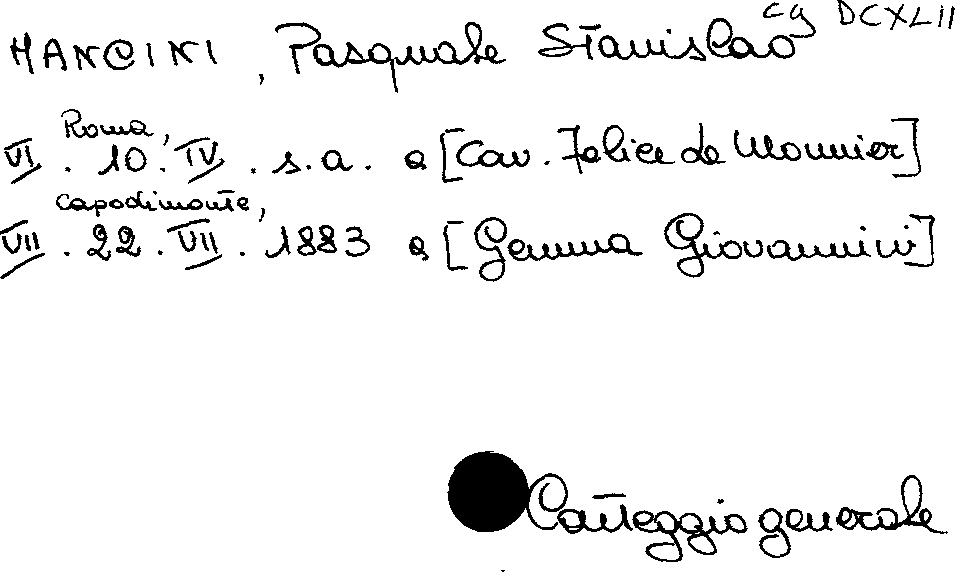 cg DCXLII
MANCINI, Pasquale Stanislao
Roma,
VI. 10. IV. s.a. a [Cav. Felice Le Monnier]
Capodimonte,
VII. 22. VII. 1883 a [Gemma Giovannini]
Carteggio generale